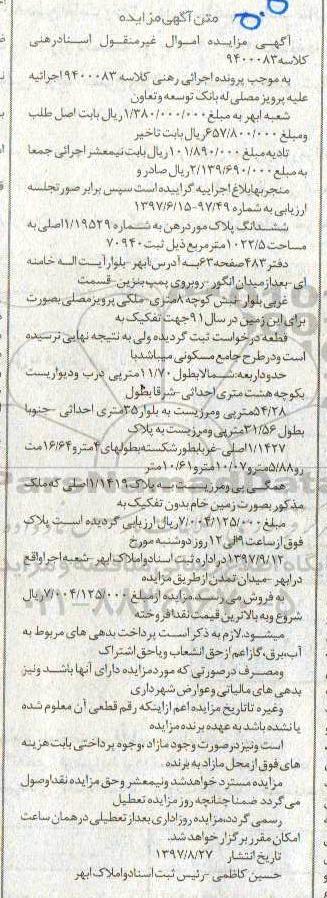 متن آگهی مزایده
آگهی مزایده اموال غیرمنقول اسناد رهنی
کلاسه ۹۴۰۰۰۸۳
به موجب پرونده اجرائی رهنی کلاسه ۹۴۰۰۰۸۳ اجرائیه
علیه پرویز مصلی له بانک توسعه و تعاون
شعبه ابهر به مبلغ ۱/۳۸۰/۰۰۰/۰۰۰ ریال بابت اصل طلب
ومبلغ ۶۵۷/۸۰۰/۰۰۰ ریال بابت تاخیر
تادیه مبلغ ۱۰۱/۸۹۰/۰۰۰ ریال بابت نیمعشر اجرائی جمعا
به مبلغ ۲/۱۳۹/۶۹۰/۰۰۰ ریال صادر و
منجر به ابلاغ اجراییه گراییده است سپس برابر صورتجلسه
ارزیابی به شماره ۹۷/۴۹-۱۳۹۷/۶/۱۵
ششدانگ پلاک مورد رهن به شماره ۱/۱۹۵۲۹ اصلی به
مساحت ۱۰۲۲/۵ مترمربع ذیل ثبت ۷۰۹۴۰
دفتر ۴۸۳ صفحه ۶۳ به آدرس ابهر-بلوار آیت اله خامنه
ای-بعداز میدان انگور-روبروی پمپ بنزین-قسمت
غربی بلوار-نبش کوچه ۸ متری-ملکی پرویز مصلی بصورت
برای این زمین در سال ۹۱ جهت تفکیک به
قطعه درخواست ثبت گردیده ولی به نتیجه نهایی نرسیده
است و در طرح جامع مسکونی میباشد با
حدود اربعه: شمالا بطول ۱۱/۷۰ متر پی درب و دیواریست
بکوچه هشت متری احداثی-شرقا بطول
۵۴/۲۸ متر پی و مرزیست به بلوار ۳۵ متری احداثی-جنوبا
بطول ۳۱/۵۶ متر پی و مرزیست به پلاک
۱/۱۴۲۷ اصلی-غربا بطور شکسته بطولهای ۴ متر و ۱۶/۶۴ مت
رو ۵/۸۸ متر و ۱۰/۰۷ متر و ۱۰/۶۱ متر
همگی پی و مرزیست به پلاک ۱/۱۴۱۹ اصلی که ملک
مذکور بصورت زمین خام بدون تفکیک به
مبلغ ۷/۰۰۴/۱۲۵/۰۰۰ ریال ارزیابی گردیده است پلاک
فوق از ساعت ۹ الی ۱۲ روز دوشنبه مورخ
۱۳۹۷/۹/۱۲ در اداره ثبت اسناد و املاک ابهر-شعبه اجرا واقع
در ابهر-میدان تمدن از طریق مزایده
به فروش می رسد. مزایده از مبلغ ۷/۰۰۴/۱۲۵/۰۰۰ ریال
شروع و به بالاترین قیمت نقدا فروخته
میشود. لازم به ذکر است پرداخت بدهی های مربوط به
آب، برق، گاز اعم از حق انشعاب و یا حق اشتراک
ومصرف در صورتی که مورد مزایده دارای آنها باشد و نیز
بدهی های مالیاتی و عوارض شهرداری
وغیره تا تاریخ مزایده اعم از اینکه رقم قطعی آن معلوم شده
یا نشده باشد به عهده برنده مزایده
است و نیز در صورت وجود مازاد، وجوه پرداختی بابت هزینه
های فوق از محل مازاد به برنده
مزایده مسترد خواهد شد و نیمعشر و حق مزایده نقدا وصول
می گردد ضمنا چنانچه روز مزایده تعطیل
رسمی گردد، مزایده روز اداری بعد از تعطیلی در همان ساعت
امکان مقرر برگزار خواهد شد.
تاریخ انتشار ۱۳۹۷/۸/۲۷
حسین کاظمی-رئیس ثبت اسناد و املاک ابهر